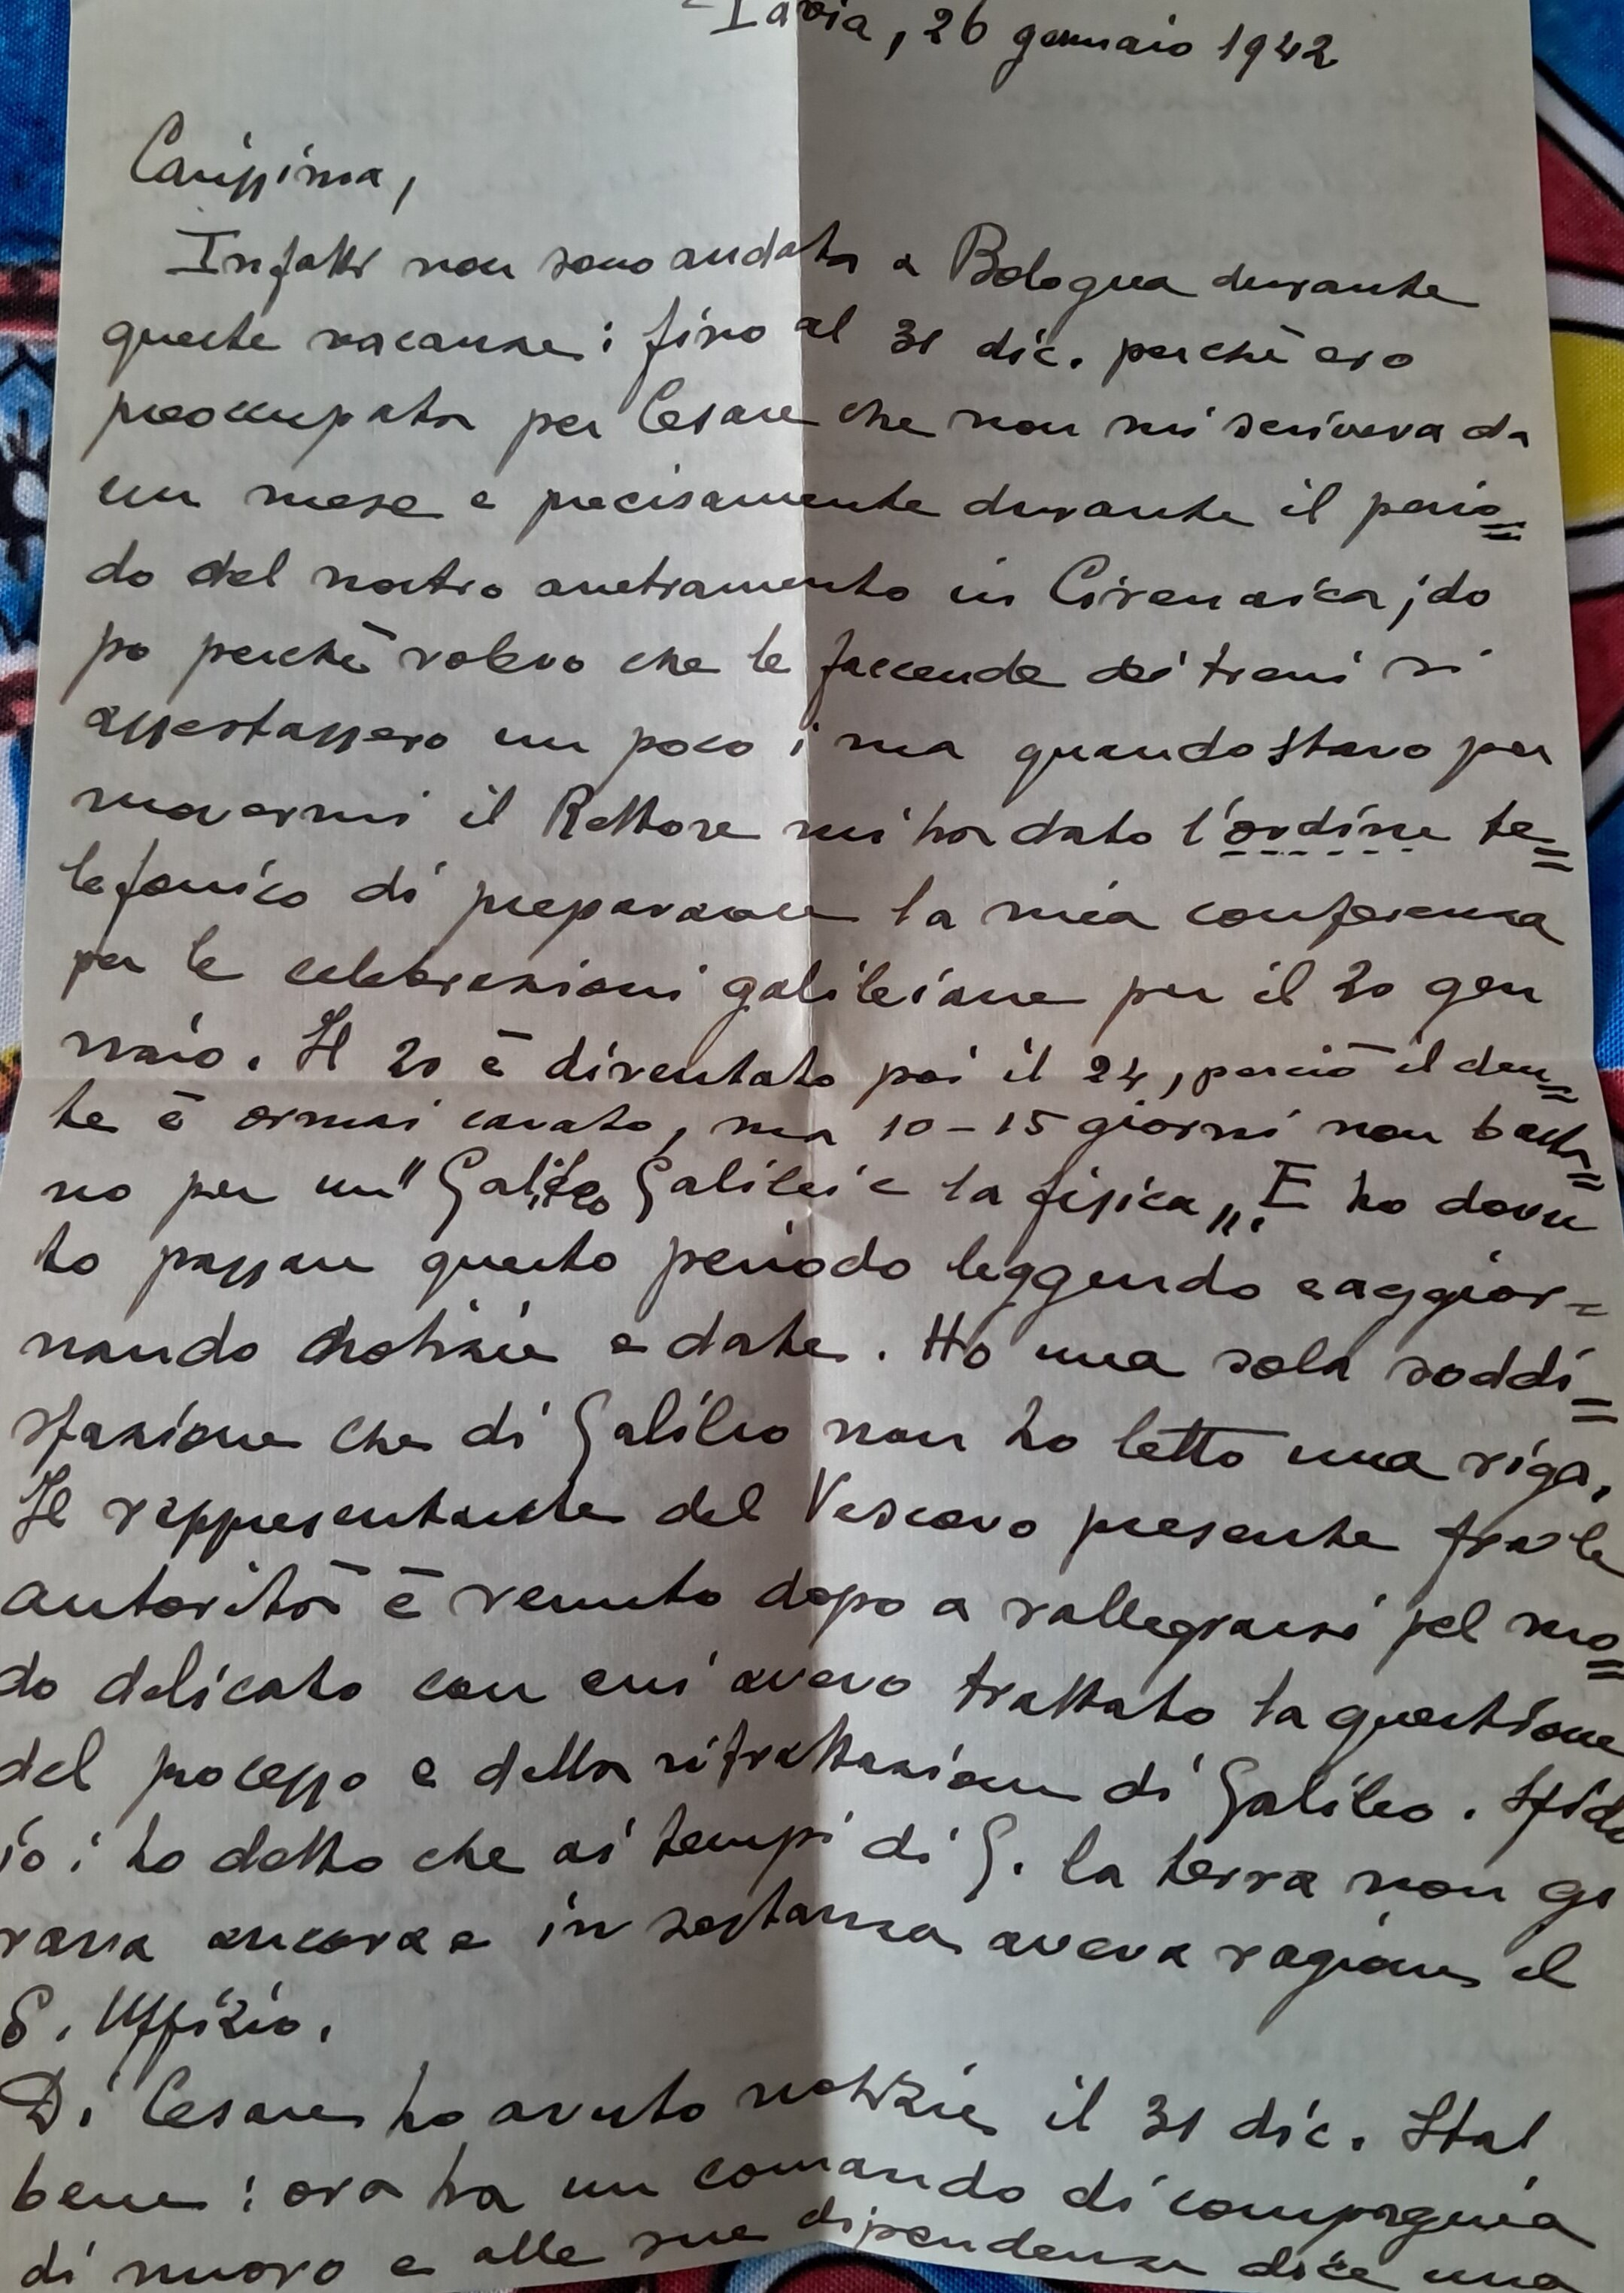 Pavia, 26 gennaio 1942
Carissima,
Infatti non sono andata a Bologna durante
queste vacanze: fino al 31 dic. perchè ero
preoccupata per Cesare che non mi scriveva da
un mese e precisamente durante il perio=
do del nostro arretramento in Cirenaica; do
po perchè volevo che le faccende dei treni si
assestassero un poco; ma quando stavo per
muovermi il Rettore mi ha dato l'ordine te=
lefonico di preparare la mia conferenza
per le celebrazioni galileiane per il 20 gen
naio. Il 20 è diventato poi il 24, perciò il den=
te è ormai cavato, ma 10-15 giorni non basta=
no per un "Galileo Galilei e la fisica". E ho dovu
to passare questo periodo leggendo e aggior=
nando notizie e date. Ho una sola soddi=
sfazione che di Galileo non ho letto una riga.
Il rappresentante del Vescovo presente fra le
autorità è venuto dopo a rallegrarsi pel mo=
do delicato con cui avevo trattato la questione
del processo e della ritrattazione di Galileo. Sfido
io: ho detto che ai tempi di G. la terra non gi
rava ancora e in sostanza aveva ragione il
S. Uffizio.
Di Cesare ho avuto notizie il 31 dic. Sta
bene: ora ha un comando di compagnia
di nuovo e alle sue dipendenze dice una